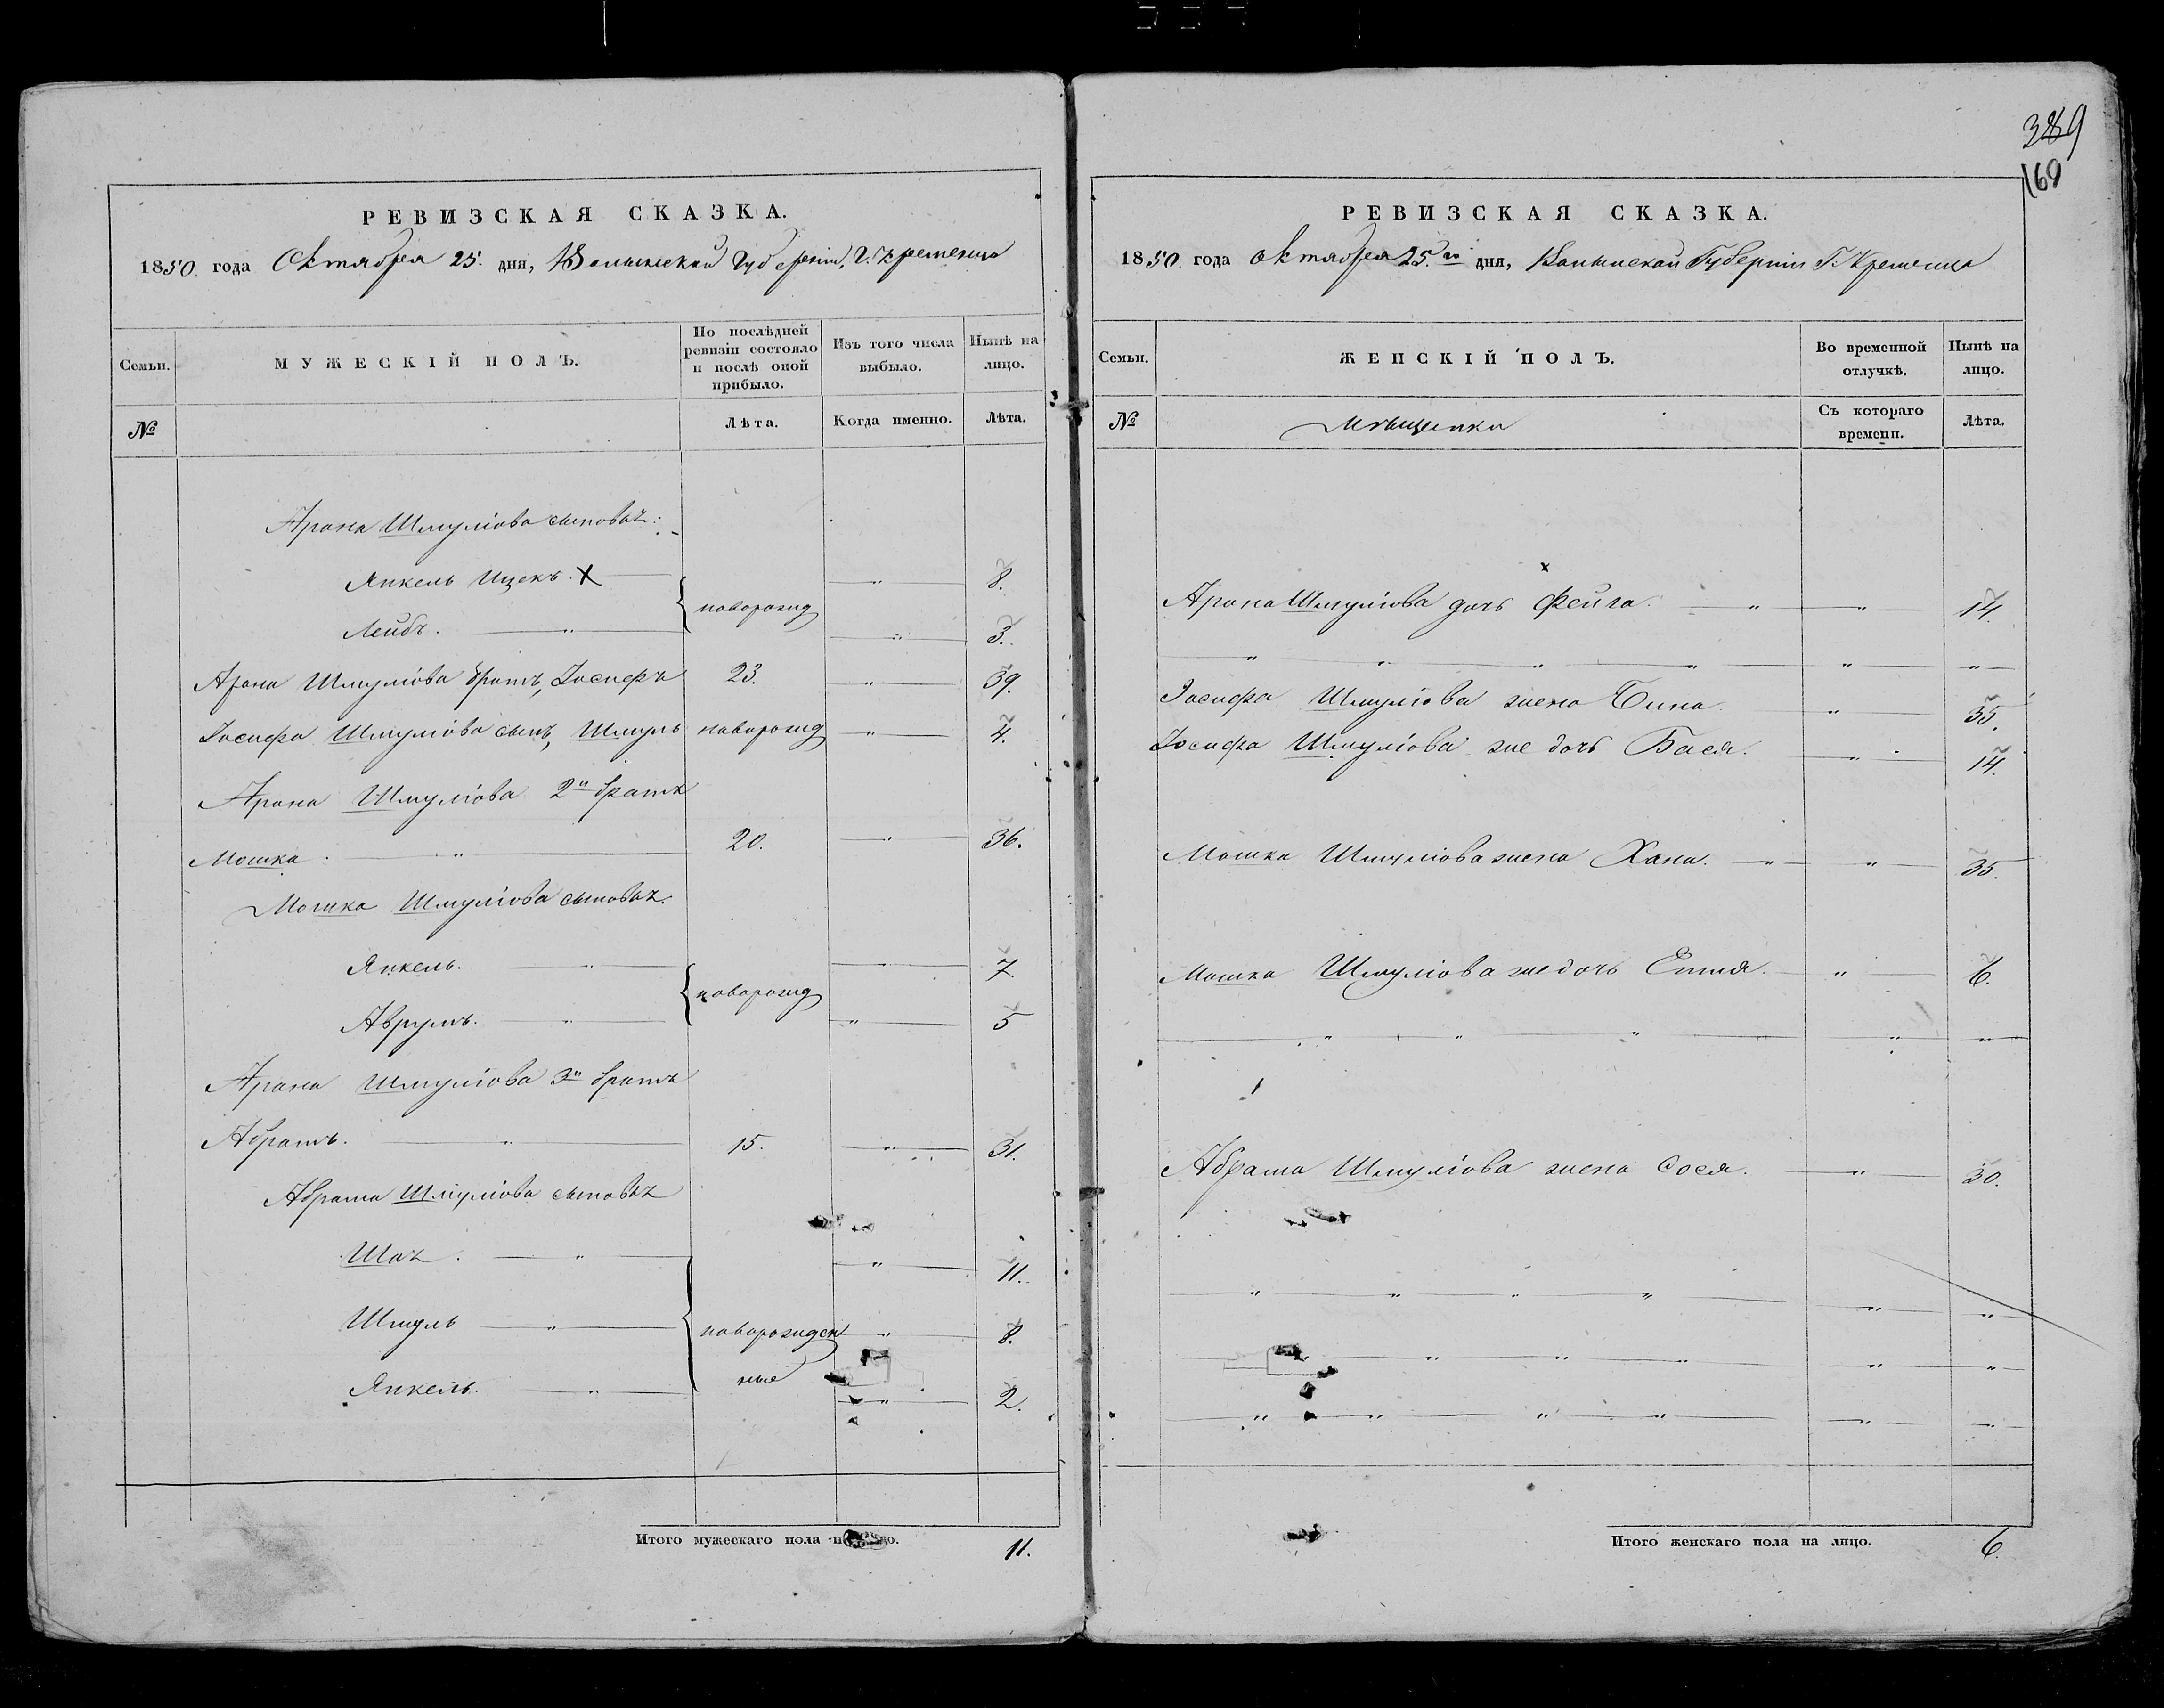 389
160
РЕВИЗСКАЯ СКАЗКА.
1850 года Октября 25. дня, Волынской Губерніи, Г. Кременца
Семьи.
МУЖЕСКІЙ ПОЛЪ.
По послѣдней ревизіи состояло и послѣ оной прибыло.
Изъ того числа выбыло.
Нынѣ на лицо.
№
Лѣта.
Когда именно.
Лѣта.
Арона Шмуліова сыновья:
Янкель Ицекъ. X — " — 8.
новорожд
Лейбъ. — " — " — 3.
Арона Шмуліова братъ, Іосифъ 23. — " — 39.
Іосифа Шмуліова сынъ, Шмуль новорожд — " — 4.
Арона Шмуліова 2й братъ
Мошка. — " — 20. — " — 36.
Мошка Шмуліова сыновья.
Янкель. — " — " — 7.
новорожд
Аврумъ. — " — " — 5
Арона Шмуліова 3й братъ
Абрамъ. — " — 15. — " — 31.
Абрама Шмуліова сыновья
Шая. — " — " — 11.
Шмуль — " — новорожден — " — 8.
ные
Янкель. — " — " — 2.
Итого мужескаго пола на лицо. 11.
РЕВИЗСКАЯ СКАЗКА.
1850 года октября 25.го дня, Волынской Губерніи Г. Кременца
Семьи.
ЖЕНСКІЙ ПОЛЪ.
Во временной отлучкѣ.
Нынѣ на лицо.
№
Мѣщанки
Съ котораго времени.
Лѣта.
x
Арона Шмуліова дочь Фейга. — " — " — 14.
" " " " " "
Іосифа Шмуліова жена Бина. " — 35.
Іосифа Шмуліова же дочь Бася. — " — 14.
Мошка Шмуліова жена Хана. — " — " — 35.
Мошка Шмуліова же дочь — " — 6.
" " " " "
Абрама Шмуліова жена Сося. — " — 30.
" " " " " "
" " " " " "
" " " " " "
Итого женскаго пола на лицо. 6.